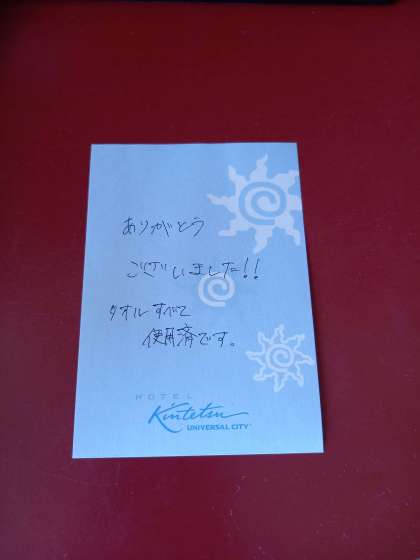 ありがとう
ございました!!
タオルすべて
使用済です。
HOTEL
Kintetsu
UNIVERSAL CITY